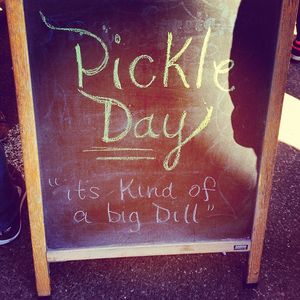 Pickle
Day
"its Kind of
a big Dill"